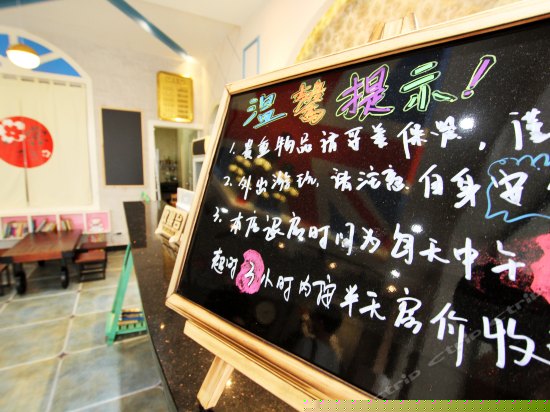 温馨提示!
1. 贵重物品请寄宿保管,谨
2. 外出游玩,请注意自身安
3. 本店退房时间为每天中午
超时3小时内按半天房价收